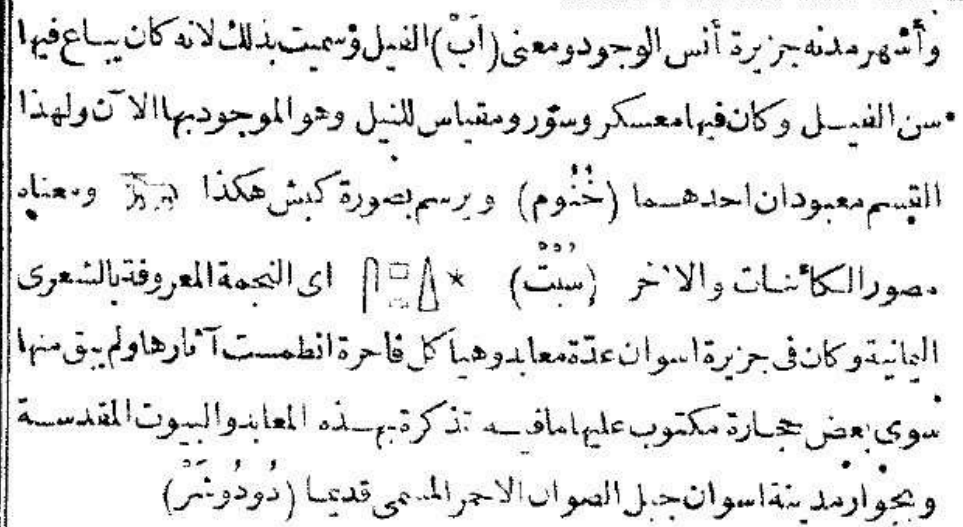 وأشهر مدنه جزيرة أنس الوجود ومعنى (آبْ) الفيل وسميت بذلك لانه كان يباع فيها
سن الفيل وكان فيها معسكر وسور ومقياس للنيل وهو الموجود بها الآن ولهذا
القسم معبودان احدهما (خُنُوم) ويرسم بصورة كبش هكذا ومعناه
مصور الكائنات والآخر (سُبْتْ) اى النجمة المعروفة بالشعرى
اليمانية وكان فى جزيرة اسوان عدّة معابد وهياكل فاخرة انطمست آثارها ولم يبق منها
سوى بعض حجارة مكتوب عليها مافيه تذكرة بهذه المعابد والبيوت المقدسة
وبجوار مدينة اسوان جبل الصوان الاحمر المسمى قديما